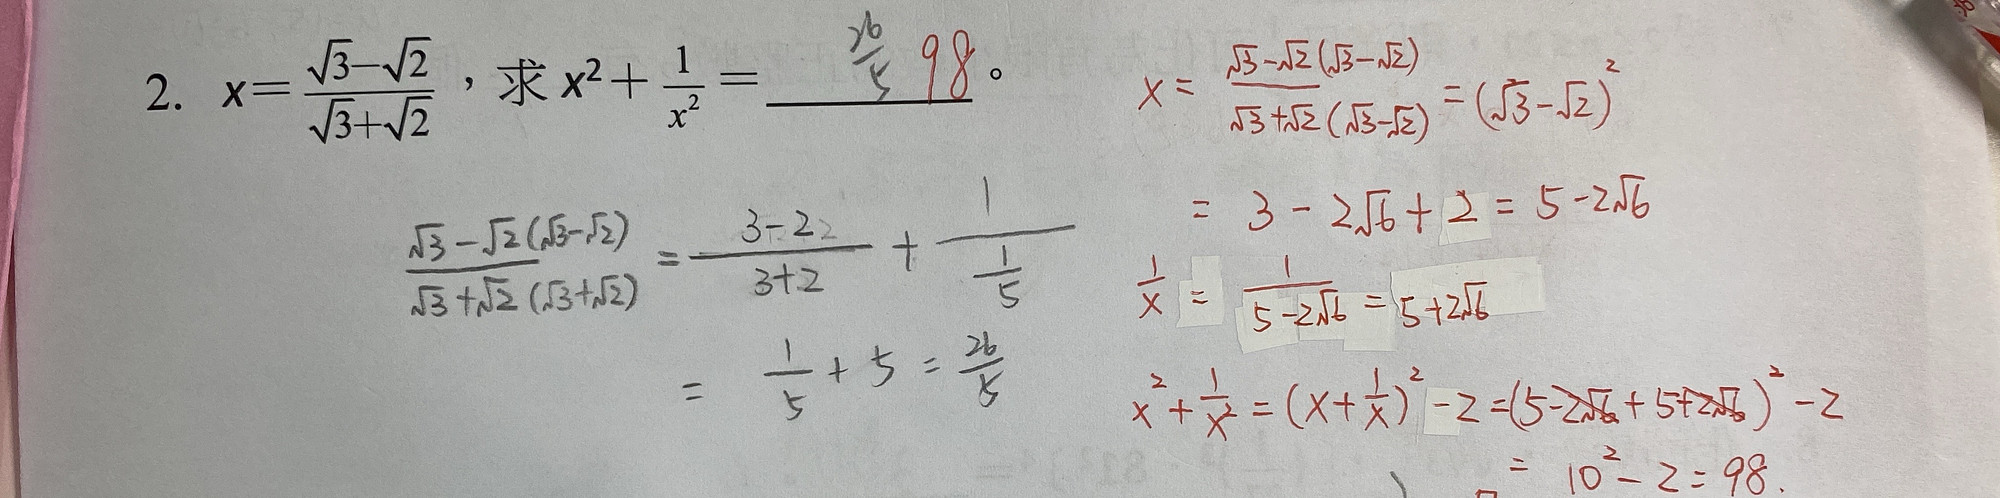 2. x=(√3-√2)/(√3+√2)，求 x²+1/x²= 26/5 98。
(√3-√2(√3-√2))/(√3+√2(√3+√2)) = (3-22)/(3+2) + 1/(1/5)
= 1/5 + 5 = 26/5
x = (√3-√2(√3-√2))/(√3+√2(√3-√2)) = (√3-√2)²
= 3 - 2√6 + 2 = 5 - 2√6
1/x = 1/(5-2√6) = 5+2√6
x² + 1/x² = (x+1/x)² - 2 = (5-2√6 + 5+2√6)² - 2
= 10² - 2 = 98.